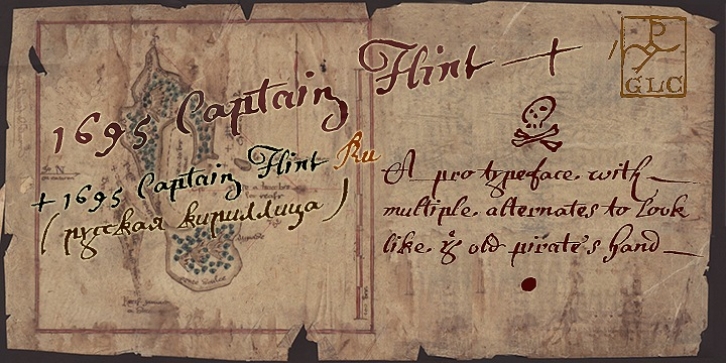 1695 Captain Flint
+ 1695 Captain Flint Ru
(русская кириллица)
P
GLC
A pro typeface. with
multiple. alternates to look
like. ye old pirate's hand
N